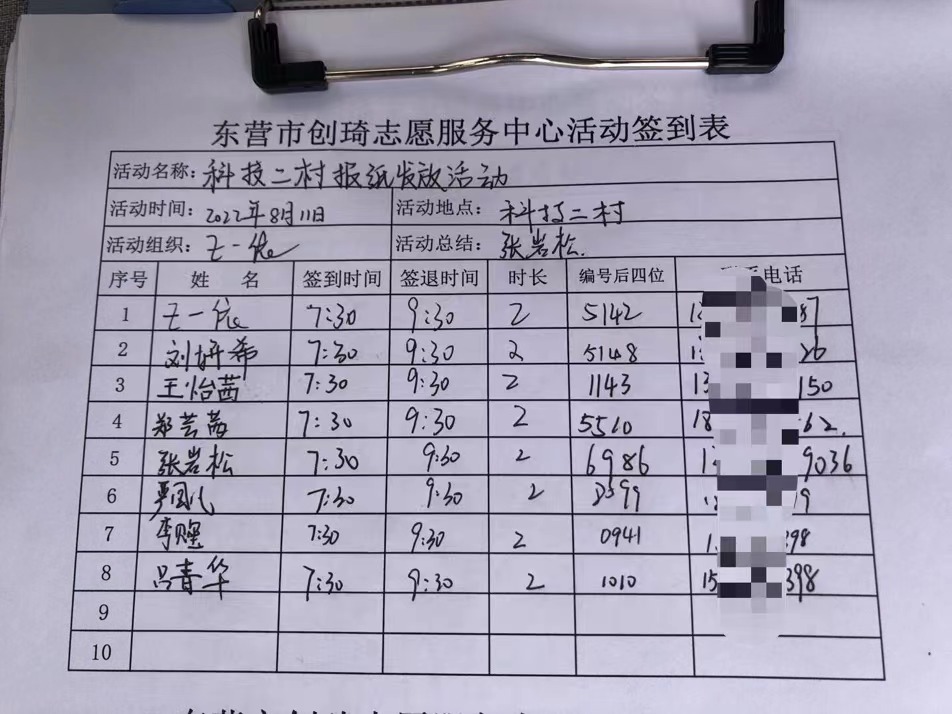 东营市创琦志愿服务中心活动签到表
活动名称: 科技二村报纸发放活动
活动时间: 2022年8月11日 活动地点: 科技二村
活动组织: 王一依 活动总结: 张岩松.
序号 姓 名 签到时间 签退时间 时长 编号后四位 电话
1 王一依 7:30 9:30 2 5142
2 刘妍希 7:30 9:30 2 5148
3 王怡茜 7:30 9:30 2 1143 150
4 郑芸茜 7:30 9:30 2 5510 18 62.
5 张岩松 7:30 9:30 2 6986 9036
6 7:30 9:30 2
7 李 7:30 9:30 2 0941 398
8 吕青华 7:30 9:30 2 1010 15 398
9
10